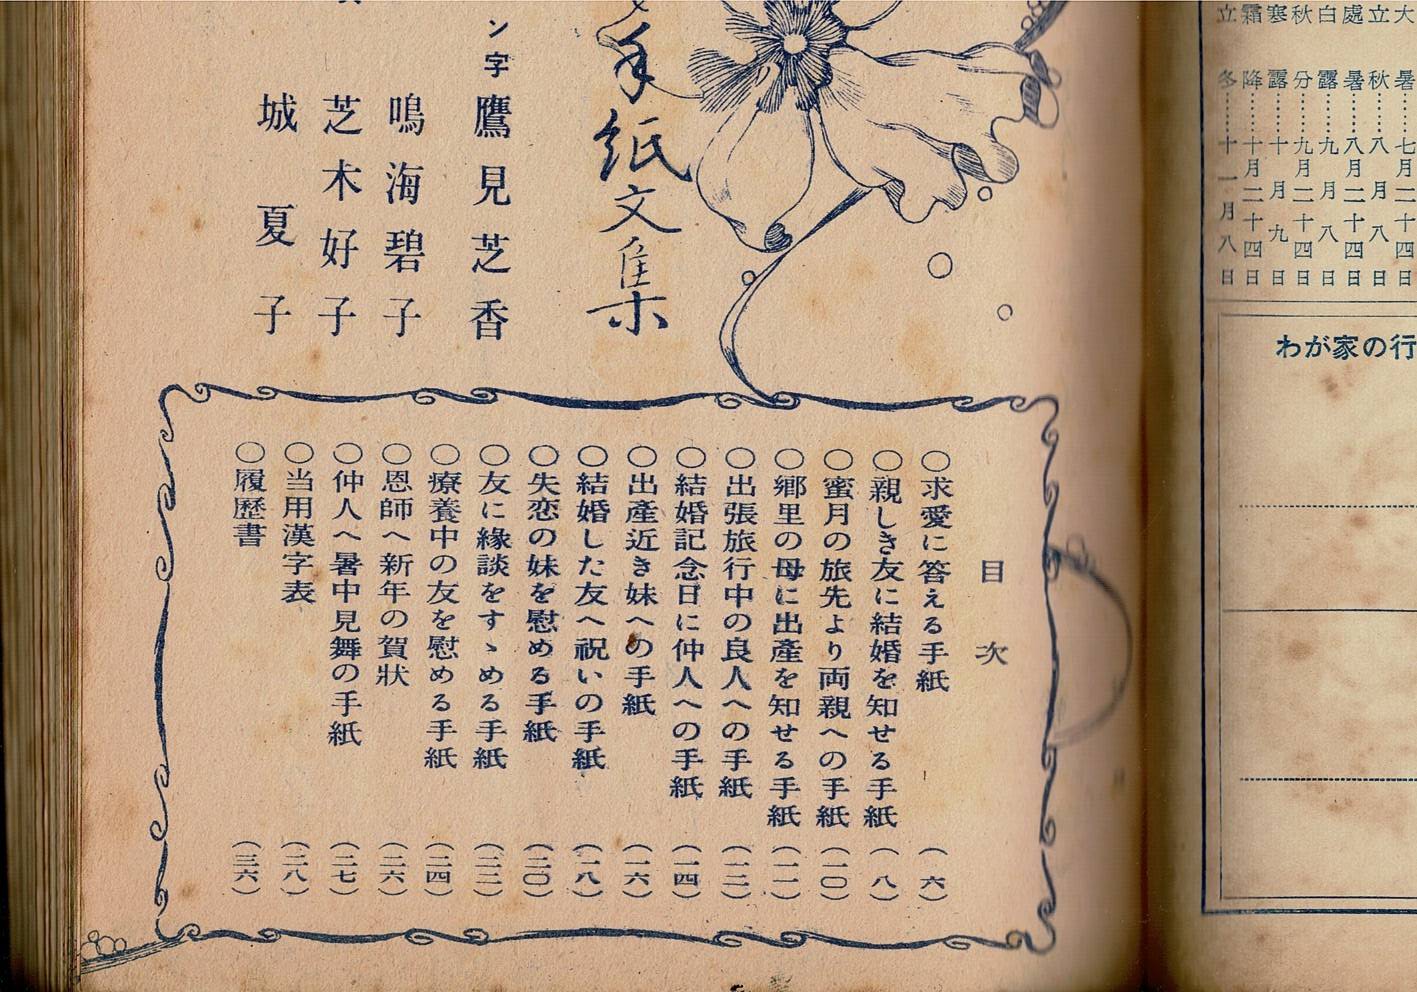 大暑……七月二十四日
立秋……八月八日
處暑……八月二十四日
白露……九月八日
秋分……九月二十四日
寒露……十月九日
霜降……十月二十四日
立冬……十一月八日
わが家の行
手紙文集
ン字
鷹見芝香
鳴海碧子
芝木好子
城夏子
目次
〇求愛に答える手紙（六）
〇親しき友に結婚を知せる手紙（八）
〇蜜月の旅先より両親への手紙（一〇）
〇郷里の母に出産を知せる手紙（一一）
〇出張旅行中の良人への手紙（一二）
〇結婚記念日に仲人への手紙（一四）
〇出産近き妹への手紙（一六）
〇結婚した友へ祝いの手紙（一八）
〇失恋の妹を慰める手紙（二〇）
〇友に縁談をすゝめる手紙（二二）
〇療養中の友を慰める手紙（二四）
〇恩師へ新年の賀状（二六）
〇仲人へ暑中見舞の手紙（二七）
〇当用漢字表（二八）
〇履歴書（三六）